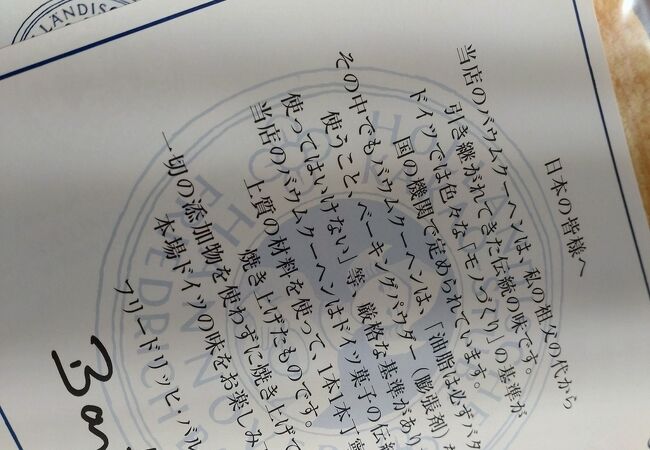 日本の皆様へ
当店のバウムクーヘンは、私の祖父の代から
引き継がれてきた伝統の味です。
ドイツでは色々な「モノづくり」の基準が
国の機関で定められています。
その中でもバウムクーヘンは「油脂は必ずバタ
使うこと、ベーキングパウダー（膨張剤）を
使ってはいけない」等 厳格な基準があり
当店のバウムクーヘンはドイツ菓子の伝統
上質の材料を使って、1本1本丁寧
焼き上げたものです。
一切の添加物を使わずに焼き上げて
本場ドイツの味をお楽しみ
フリードリッヒ・バル
LANDIS